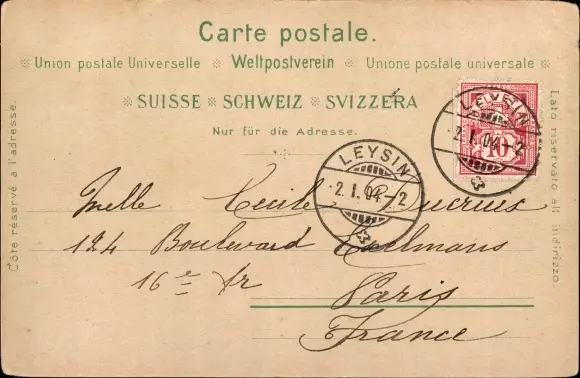 Carte postale.
Union postale Universelle Weltpostverein Unione postale universale
SUISSE SCHWEIZ SVIZZERA
Nur für die Adresse.
Côté réservé à l'adresse.
Lato riservato all' indirizzo
10
LEYSIN
2.I.04-2
LEYSIN
2.I.04-2
Melle Cécile
124 Boulevard Exelmans
16e Ar
Paris
France